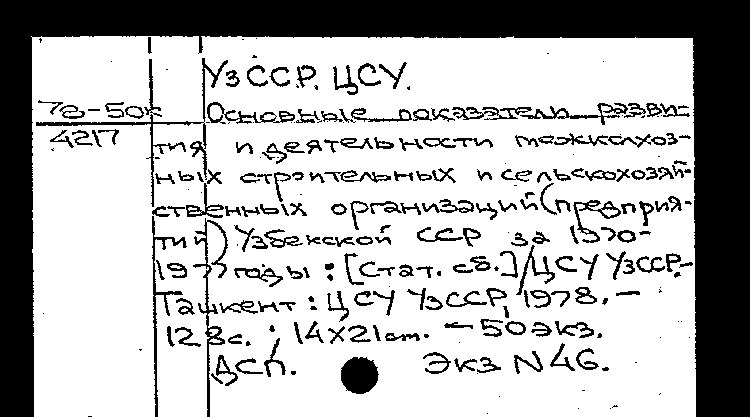 УзССР. ЦСУ.
78-50к Основные показатели разви-
4217 тия и деятельности межколхоз-
ных строительных и сельскохозяй-
ственных организаций (предприя-
тий) Узбекской ССР за 1970-
1977 годы : [Стат. сб.] / ЦСУ УзССР.-
Ташкент : ЦСУ УзССР, 1978. —
128с. ; 14х21см. — 50экз.
ДСП. Экз N46.